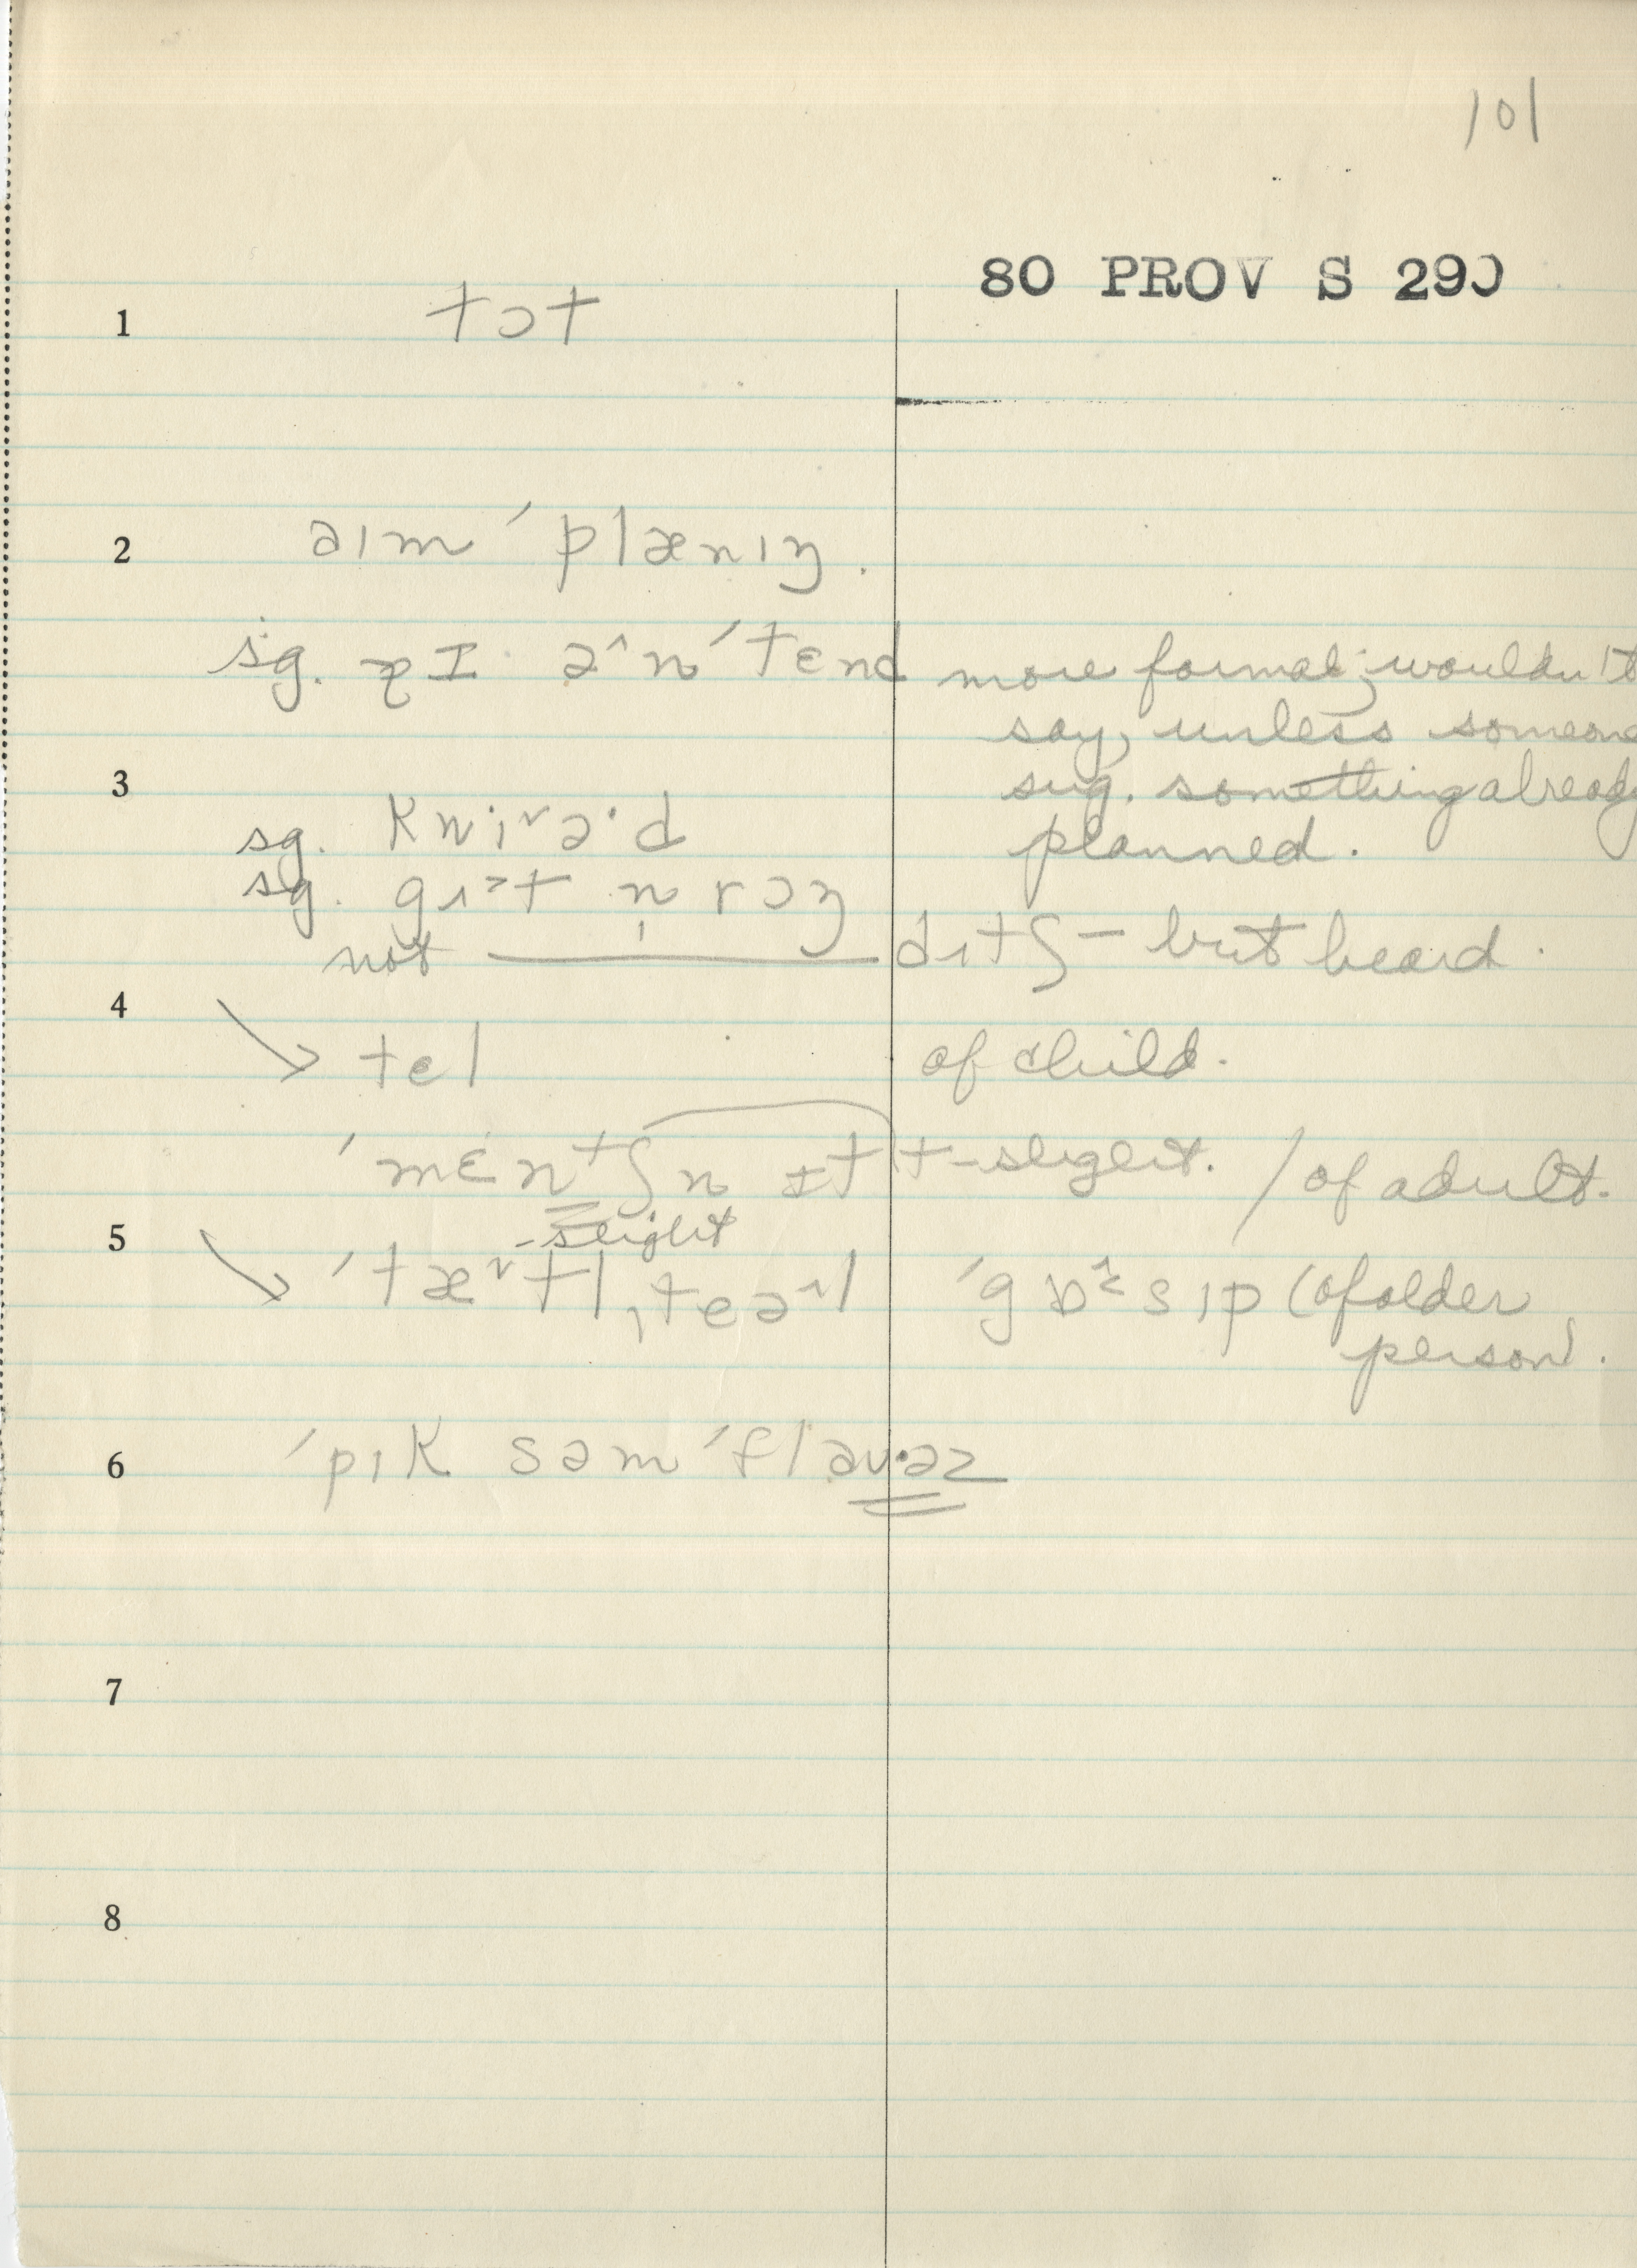 101
80 PROV S 290
1 tɔt
2 aɪm ˈplænɪŋ.
sg. aɪ ə^nˈtend more formal; wouldn't
say, unless someone
sug. something already
3 planned.
sg. kwiˇə·d
sg. gɪ˃t n̩ rɔŋ
not ditʃ – but heard.
4
→ tel of child.
ˈmɛntʃn ɪt t-slight. / of adult.
5 -slight
→ ˈtæˇtlˌteəˆl ˈgɒsɪp (of older
person).
6 ˈpɪk səm ˈflaʊ·əz
7
8